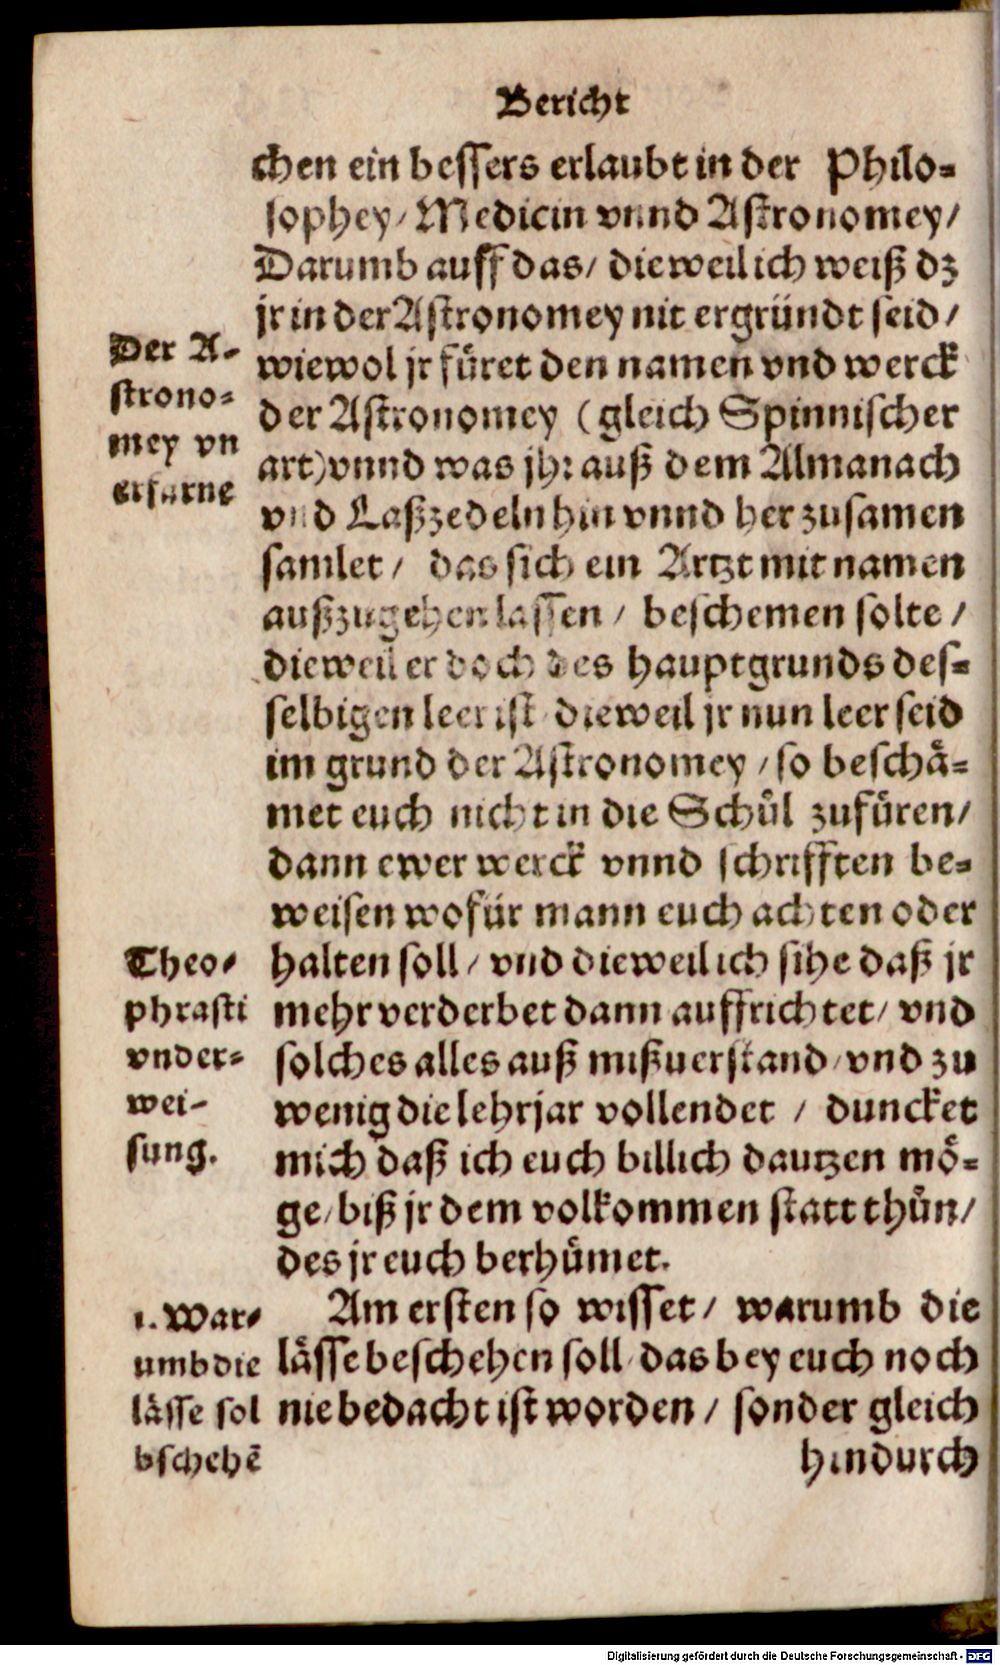 Bericht
chen ein bessers erlaubt in der Philo-
sophey/ Medicin vnnd Astronomey/
Darumb auff das/ dieweil ich weiß dz
jr in der Astronomey nit ergründt seid/
wiewol jr füret den namen vnd werck
der Astronomey (gleich Spinnischer
art) vnnd was jhr auß dem Almanach
vnd Laßzedeln hin vnnd her zusamen
samlet/ das sich ein Artzt mit namen
außzugehen lassen/ beschemen solte/
dieweil er doch des hauptgrunds des-
selbigen leer ist/ dieweil jr nun leer seid
im grund der Astronomey/ so beschå-
met euch nicht in die Schůl zufüren/
dann ewer werck vnnd schrifften be-
weisen wofür mann euch achten oder
halten soll/ vnd dieweil ich sihe daß jr
mehr verderbet dann auffrichtet/ vnd
solches alles auß mißuerstand/ vnd zu
wenig die lehrjar vollendet/ duncket
mich daß ich euch billich dautzen mö-
ge/ biß jr dem volkommen statt thůn/
des jr euch berhůmet.
Am ersten so wisset/ warumb die
låsse beschehen soll/ das bey euch noch
nie bedacht ist worden/ sonder gleich
hindurch
Der A-
strono-
mey vn
erfarne
Theo-
phrasti
vnder-
wei-
sung.
1. War-
umb die
låsse sol
bschehē
Digitalisierung gefördert durch die Deutsche Forschungsgemeinschaft - DFG